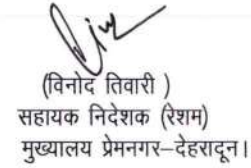 (विनोद तिवारी )
सहायक निदेशक (रेशम)
मुख्यालय प्रेमनगर–देहरादून।